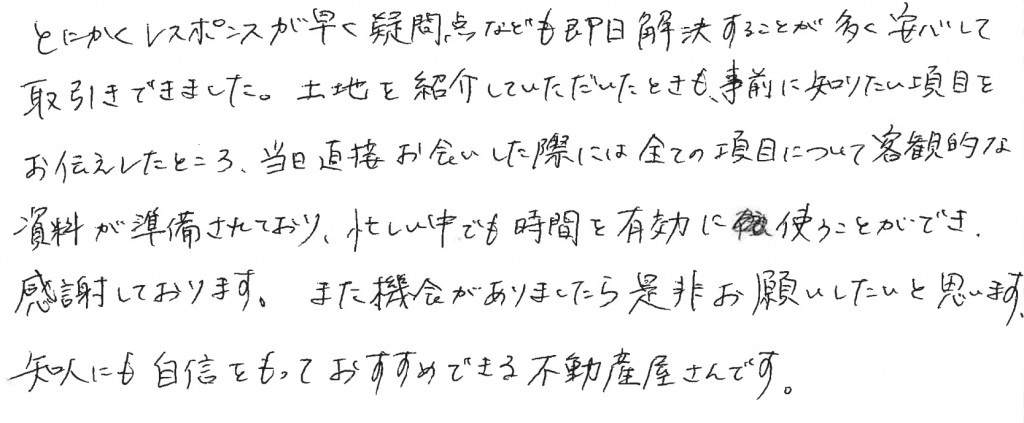 とにかくレスポンスが早く疑問点なども即日解決することが多く安心して
取引きできました。土地を紹介していただいたときも、事前に知りたい項目を
お伝えしたところ、当日直接お会いした際には全ての項目について客観的な
資料が準備されており、忙しい中でも時間を有効に使うことができ、
感謝しております。また機会がありましたら是非お願いしたいと思います。
知人にも自信をもっておすすめできる不動産屋さんです。